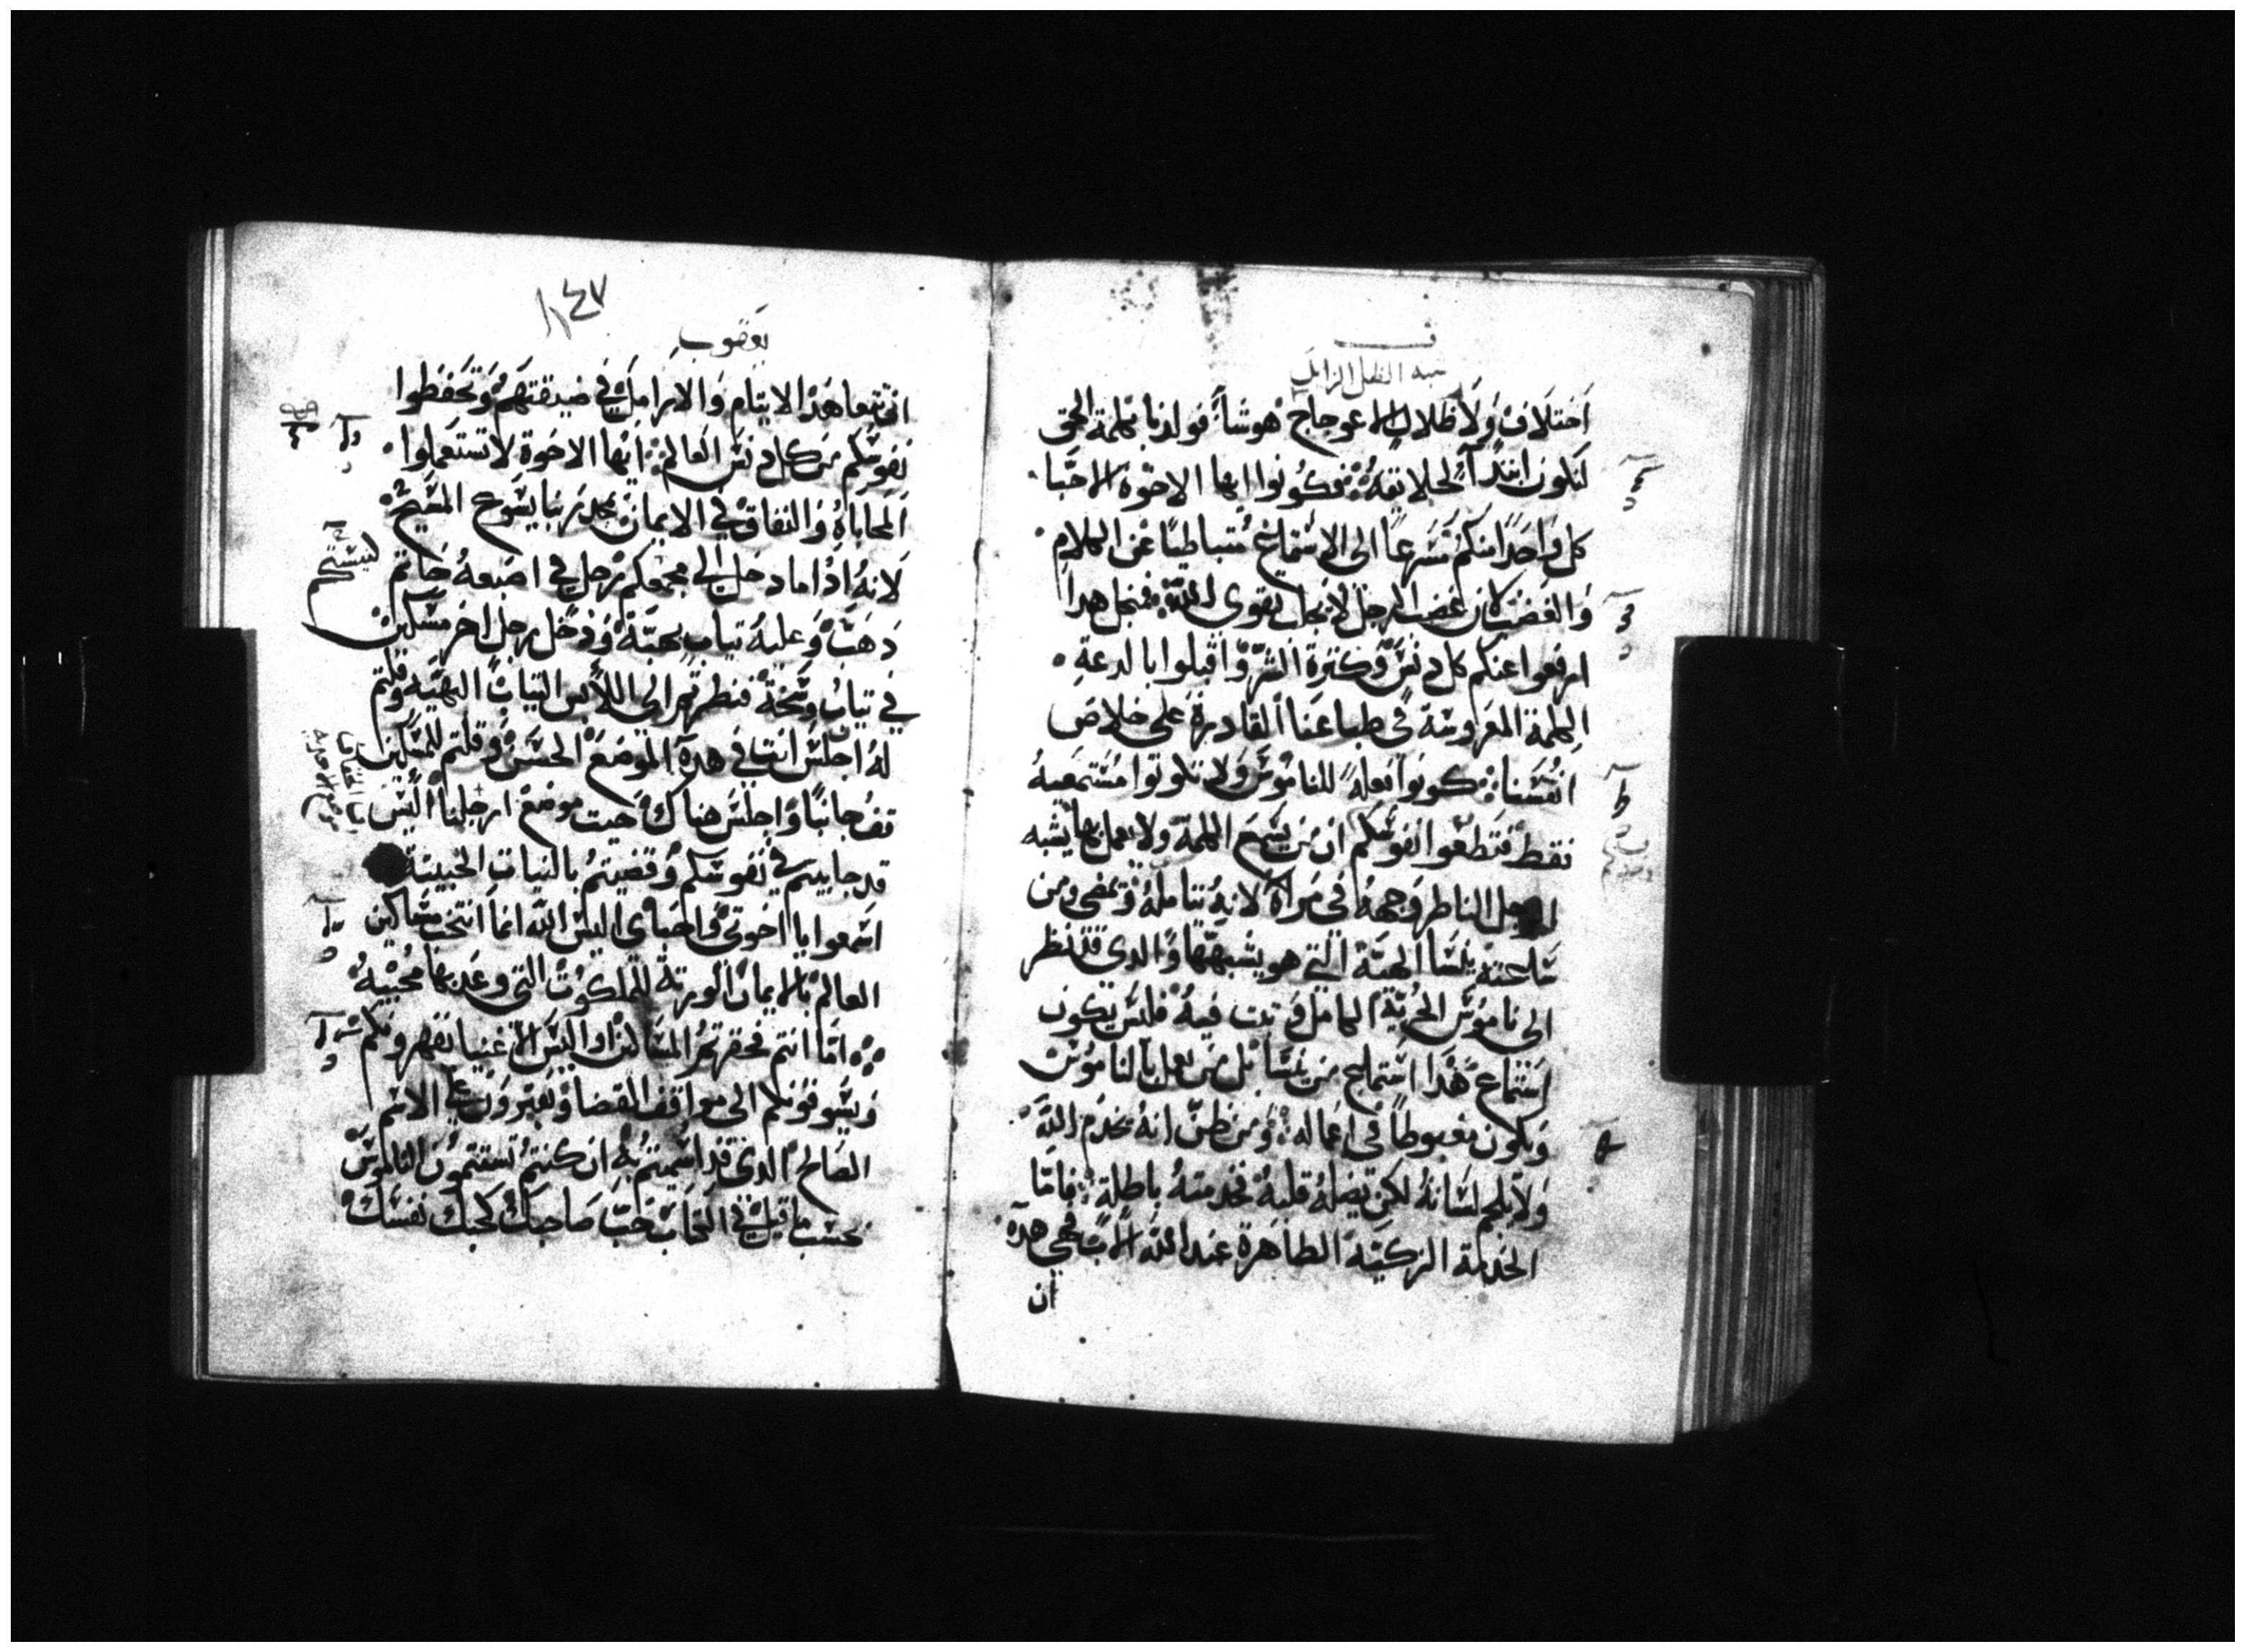 شبه الظل الزايل
اختلاف ولا ظلال الاعوجاج هو شا فولدنا بكلمة الحق
لنكون ابتدا لخلايقه فكونوا ايها الاخوة الاحبا
كل واحدا منكم مسرعا الى الاستماع متباطيا عن الكلام
والغضب لان غضب الرجل لا يعمل بتقوى الله فنجل هدا
ارفعوا عنكم كل دنس وكترة الشر واقبلوا بالدعة
الكلمة المغروسة في طباعنا القادرة على خلاص
انفسنا كونوا فعله للناموس ولا تكونوا مستمعيه
فقط فتطغوا نفوسكم ان من يسمع الكلمة ولا يعمل بها يشبه
الرجل الناظر وجهه في مراة لانه يتامله ويمضي ومن
ساعته ينسا الهية التي هو يشبهها والدي قد نظر
الى ناموس الحرية الكامل وتبت فيه فليس يكون
استماع هدا استماع من ينسا بل من يعمل بالناموس
ويكون مغبوطا في اعماله ومن ظن انه يخدم الله
ولا يلجم لسانه لكن يضله قلبه فخدمته باطلة فاما
الخدمة الزكية الطاهرة عند الله الاب فهي هده
ان
١٤٧
يعقوب
ان تتعاهد الايتام والارامل في ضيقتهم وتحفظوا
نفوسكم من كل دنس العالم ايها الاخوة لا تستعملوا
المحاباة والنفاق في الايمان بمجد ربنا يسوع المسيح
لانه ادا ما دخل الى مجمعكم رجل في اصبعه خاتم
دهب وعليه تياب بهية ودخل رجل اخر مسكين
في تياب وسخة فنظرتم الى اللابس التياب البهية وقلتم
له اجلس انت في هده الموضع الحسن وقلتم للمسكين
قف جانبا واجلس هناك حيت موضع ارجلنا اليس
قد حابيتم في نفوسكم وقضيتم بالنيات الخبيتة
اسمعوا يا اخوتي واحباي اليس الله انما انتخب مساكين
العالم بالايمان الورتة للملكوت التي وعد بها محبيه
اما انتم فحقرتم المساكين او اليس الاغنيا تقهرونكم
ويسوقونكم الى مواقف القضا ويفترون على الاسم
الصالح الدي قد اسميتم به ان كنتم تستتمون الناموس
بحسب ما قيل في الكتاب حب صاحبك كحبك نفسك